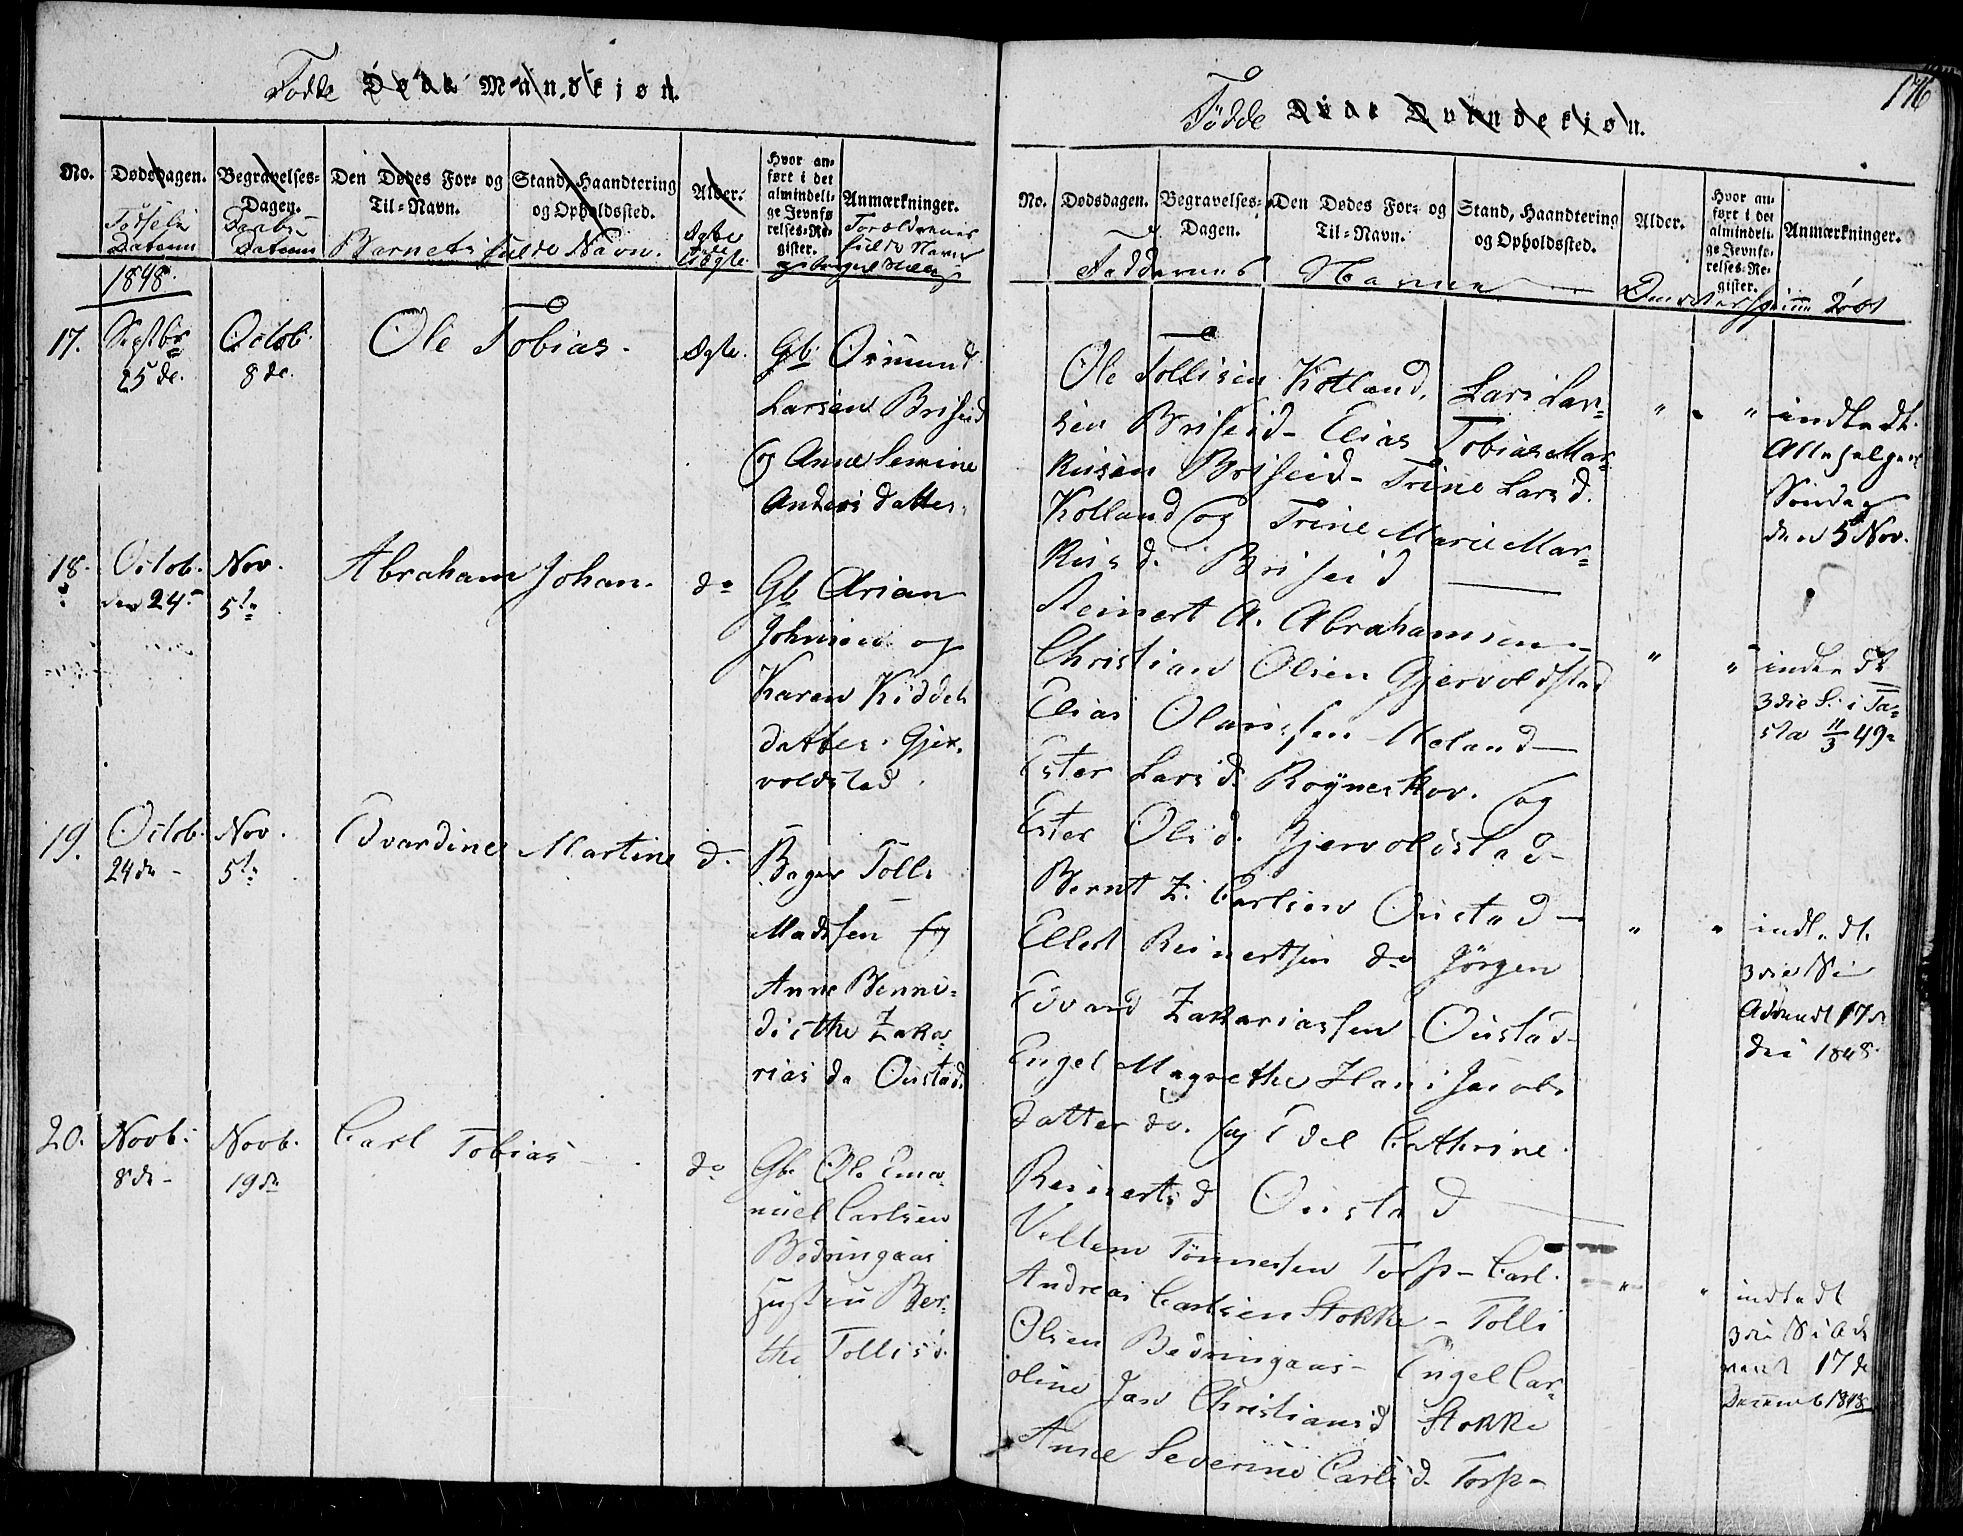 Fødde Døde Mandkjøn.
No.
Dødsdagen.
Begravelses-
Dagen.
Den Dødes For- og
Til-Navn.
Stand, Haandtering
og Opholdssted.
Alder.
Hvor an-
ført i det
almindeli-
ge Jevnfø
relses-Re-
gister.
Anmærkninger.
Fødsels
Datum
Daabs-
Datum
Barnets fulde Navn.
Ægte
Uægte
Forældrenes
fulde Navn
1848.
17.
Septbr
25de.
Octob.
8de.
Ole Tobias.
Ægte.
Gb. Osmund
Larsen Briseid
og Anne Semine
Anders datter
18.
Octob.
den 24.
Nov.
5te
Abraham Johan.
do
Gb Arian
Johnsen og
Karen Kiddels
datter. Gjer-
voldstad
19.
Octob.
24de -
Nov.
5te
Edvardine Martine
d.
Tolle
Madssen og
Anne Benne-
dicthe Zaka-
rias da Oustad.
20.
Novb.
8de -
Novb.
19de
Carl Tobias
do
Gb. Ole Ema-
nuel Carlsen
Bedringaas
Hustru Ber-
the Tollisd.
176
Fødde Døde Qvindekjøn.
No.
Dødsdagen.
Begravelses-
Dagen.
Den Dødes For- og
Til-Navn.
Stand, Haandtering
og Opholdssted.
Alder.
Hvor an-
ført i det
almindeli-
ge Jevnfø-
relses-Re-
gister.
Anmærkninger.
Faddernes Navne
Ole Tollisen Kolland, Lars Lar-
sen Briseid - Elias Tobias Mar-
kusen Briseid - Trine Larsd.
Kolland og Trine Marie Mar-
kusd. Briseid
" " indledt.
Allehelgens
Søndag
den 5 Nov.
Reinert A. Abrahamsen -
Christian Olsen Gjervoldstad
Elias Olaussen Meland -
Ester Larsd. Røyneskor. og
Ester Olsd. Gjervoldstad -
" " indledt
3die S. i Fa-
sta 11/3 49.
Bernt Z. Carlsen Oustad -
Ellert Reinertsen do Jörgen
Edvard Zakariassen Oustad -
Engel Magrethe Hans Jacobs
datter do. og Edel Cathrine.
Reinertsd Oustad
" " indledt.
3die S i
Advendt 17de
1848.
Vellem Tönnessen Torp - Carl.
Andreas Carlsen Stokke - Tolli
Olsen Bedringaas - Engel Car-
oline Jan Christiansd Stokke
Anne Severine Carlsd. Torp -
" " indledt
3die S i Ad
vent 17de
Decemb 1848